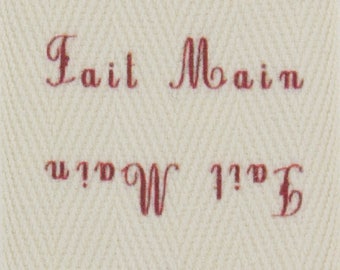 Fait Main
Fait Main